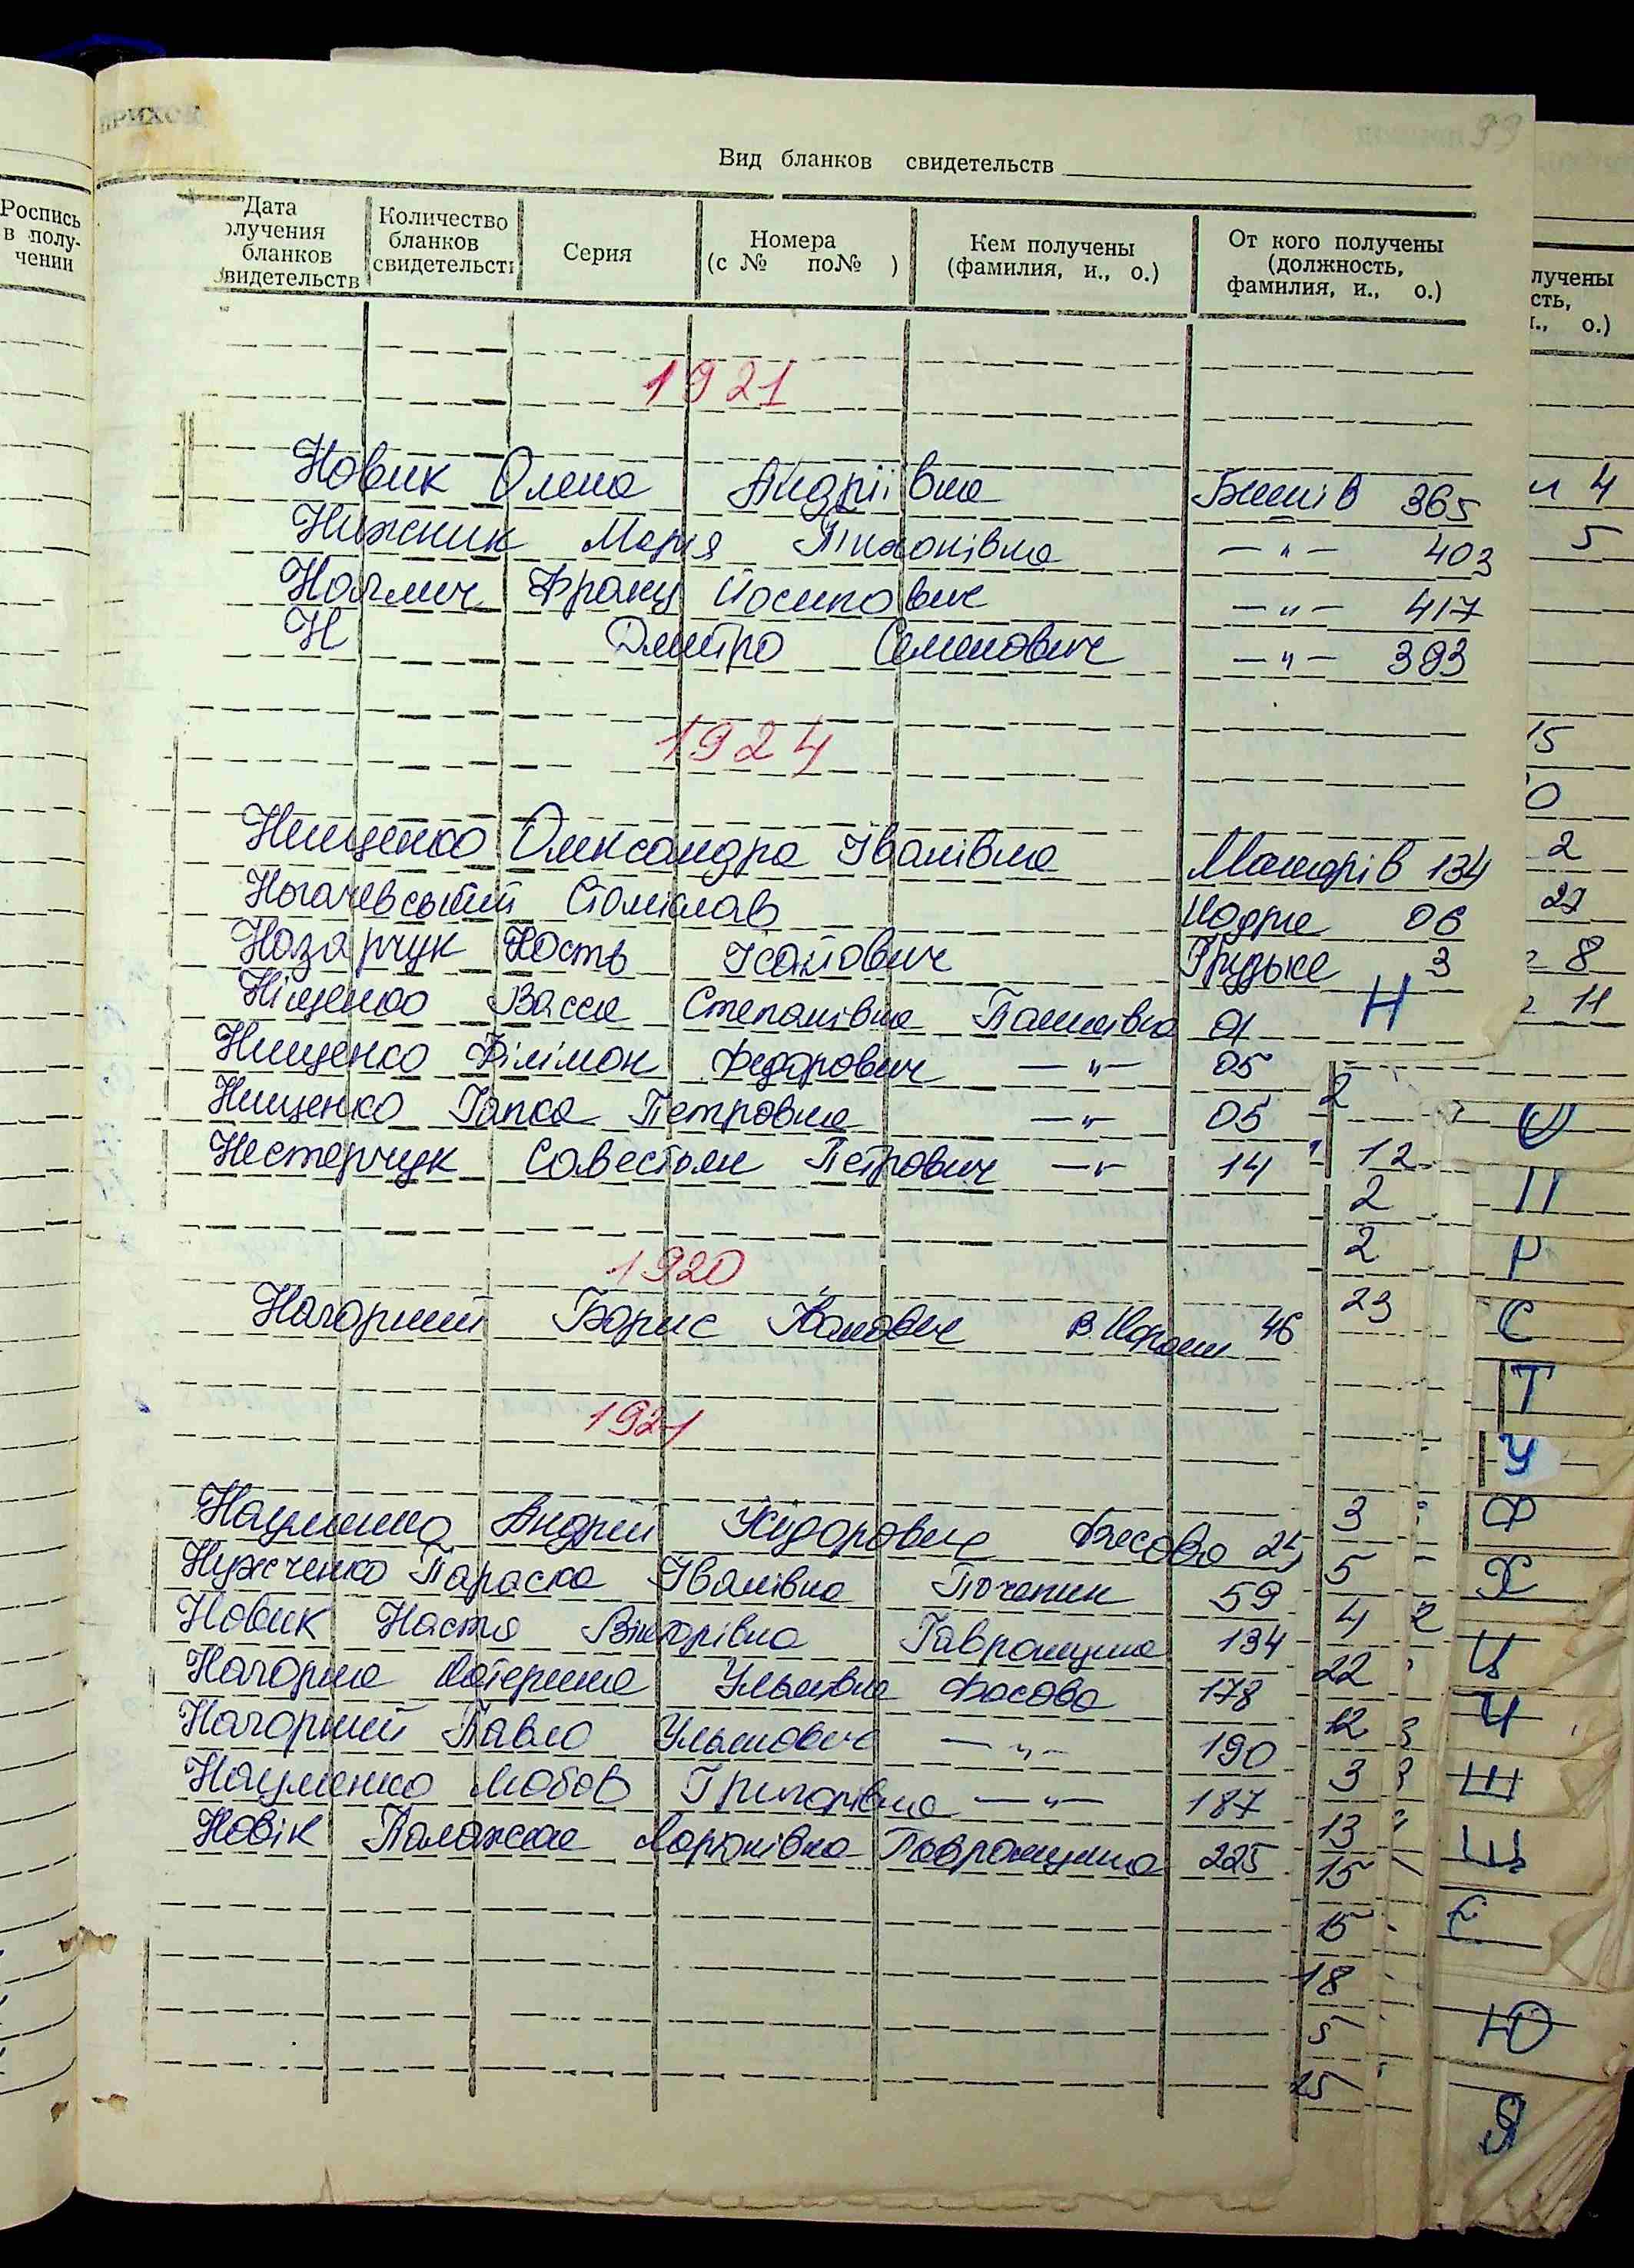 ПРИХОД
99
Вид бланков свидетельств
Роспись в полу- чении
Дата получения бланков свидетельств
Количество бланков свидетельств
Серия
Номера (с № по№ )
Кем получены (фамилия, и., о.)
От кого получены (должность, фамилия, и., о.)
лучены
сть,
о.)
1921
Новик Олена Андріївна Бишів 365
Нижник Марія Тихонівна —"— 403
Франц Йосипович —"— 417
Н Дмитро Семенович —"— 393
1924
Нищенко Олександра Іванівна Макарів 134
Станіслав 06
Назарчук Кость Ісакович Грузьке 3
Ніщенко Васса Степанівна Пашківка 01
Н
Нищенко Філімон Федорович —"— 05
Нищенко Гапка Петровна —"— 05
Нестерчук Савестьян Петрович —"— 14
1920
Нагорний Борис Іванович 46
1921
Науменко Андрій Жидорович Фасова 25
Нужченко Параска Іванівна Почепин 59
Новик Настя Вікторівна Гавронщина 134
Нагорна Катерина Улянівна Фасова 178
Нагорний Павло Улянович —"— 190
Науменко Любов Григорівна —"— 187
Новік Палажка Марківна Гавронщина 225
4
5
15
0
2
27
8
11
2
12
2
2
23
3
5
4 2
22
12 3
3 3
13
15
15
18
5
25
О
П
Р
С
Т
У
Ф
Х
Ц
Ч
Ш
Щ
Є
Ю
Я